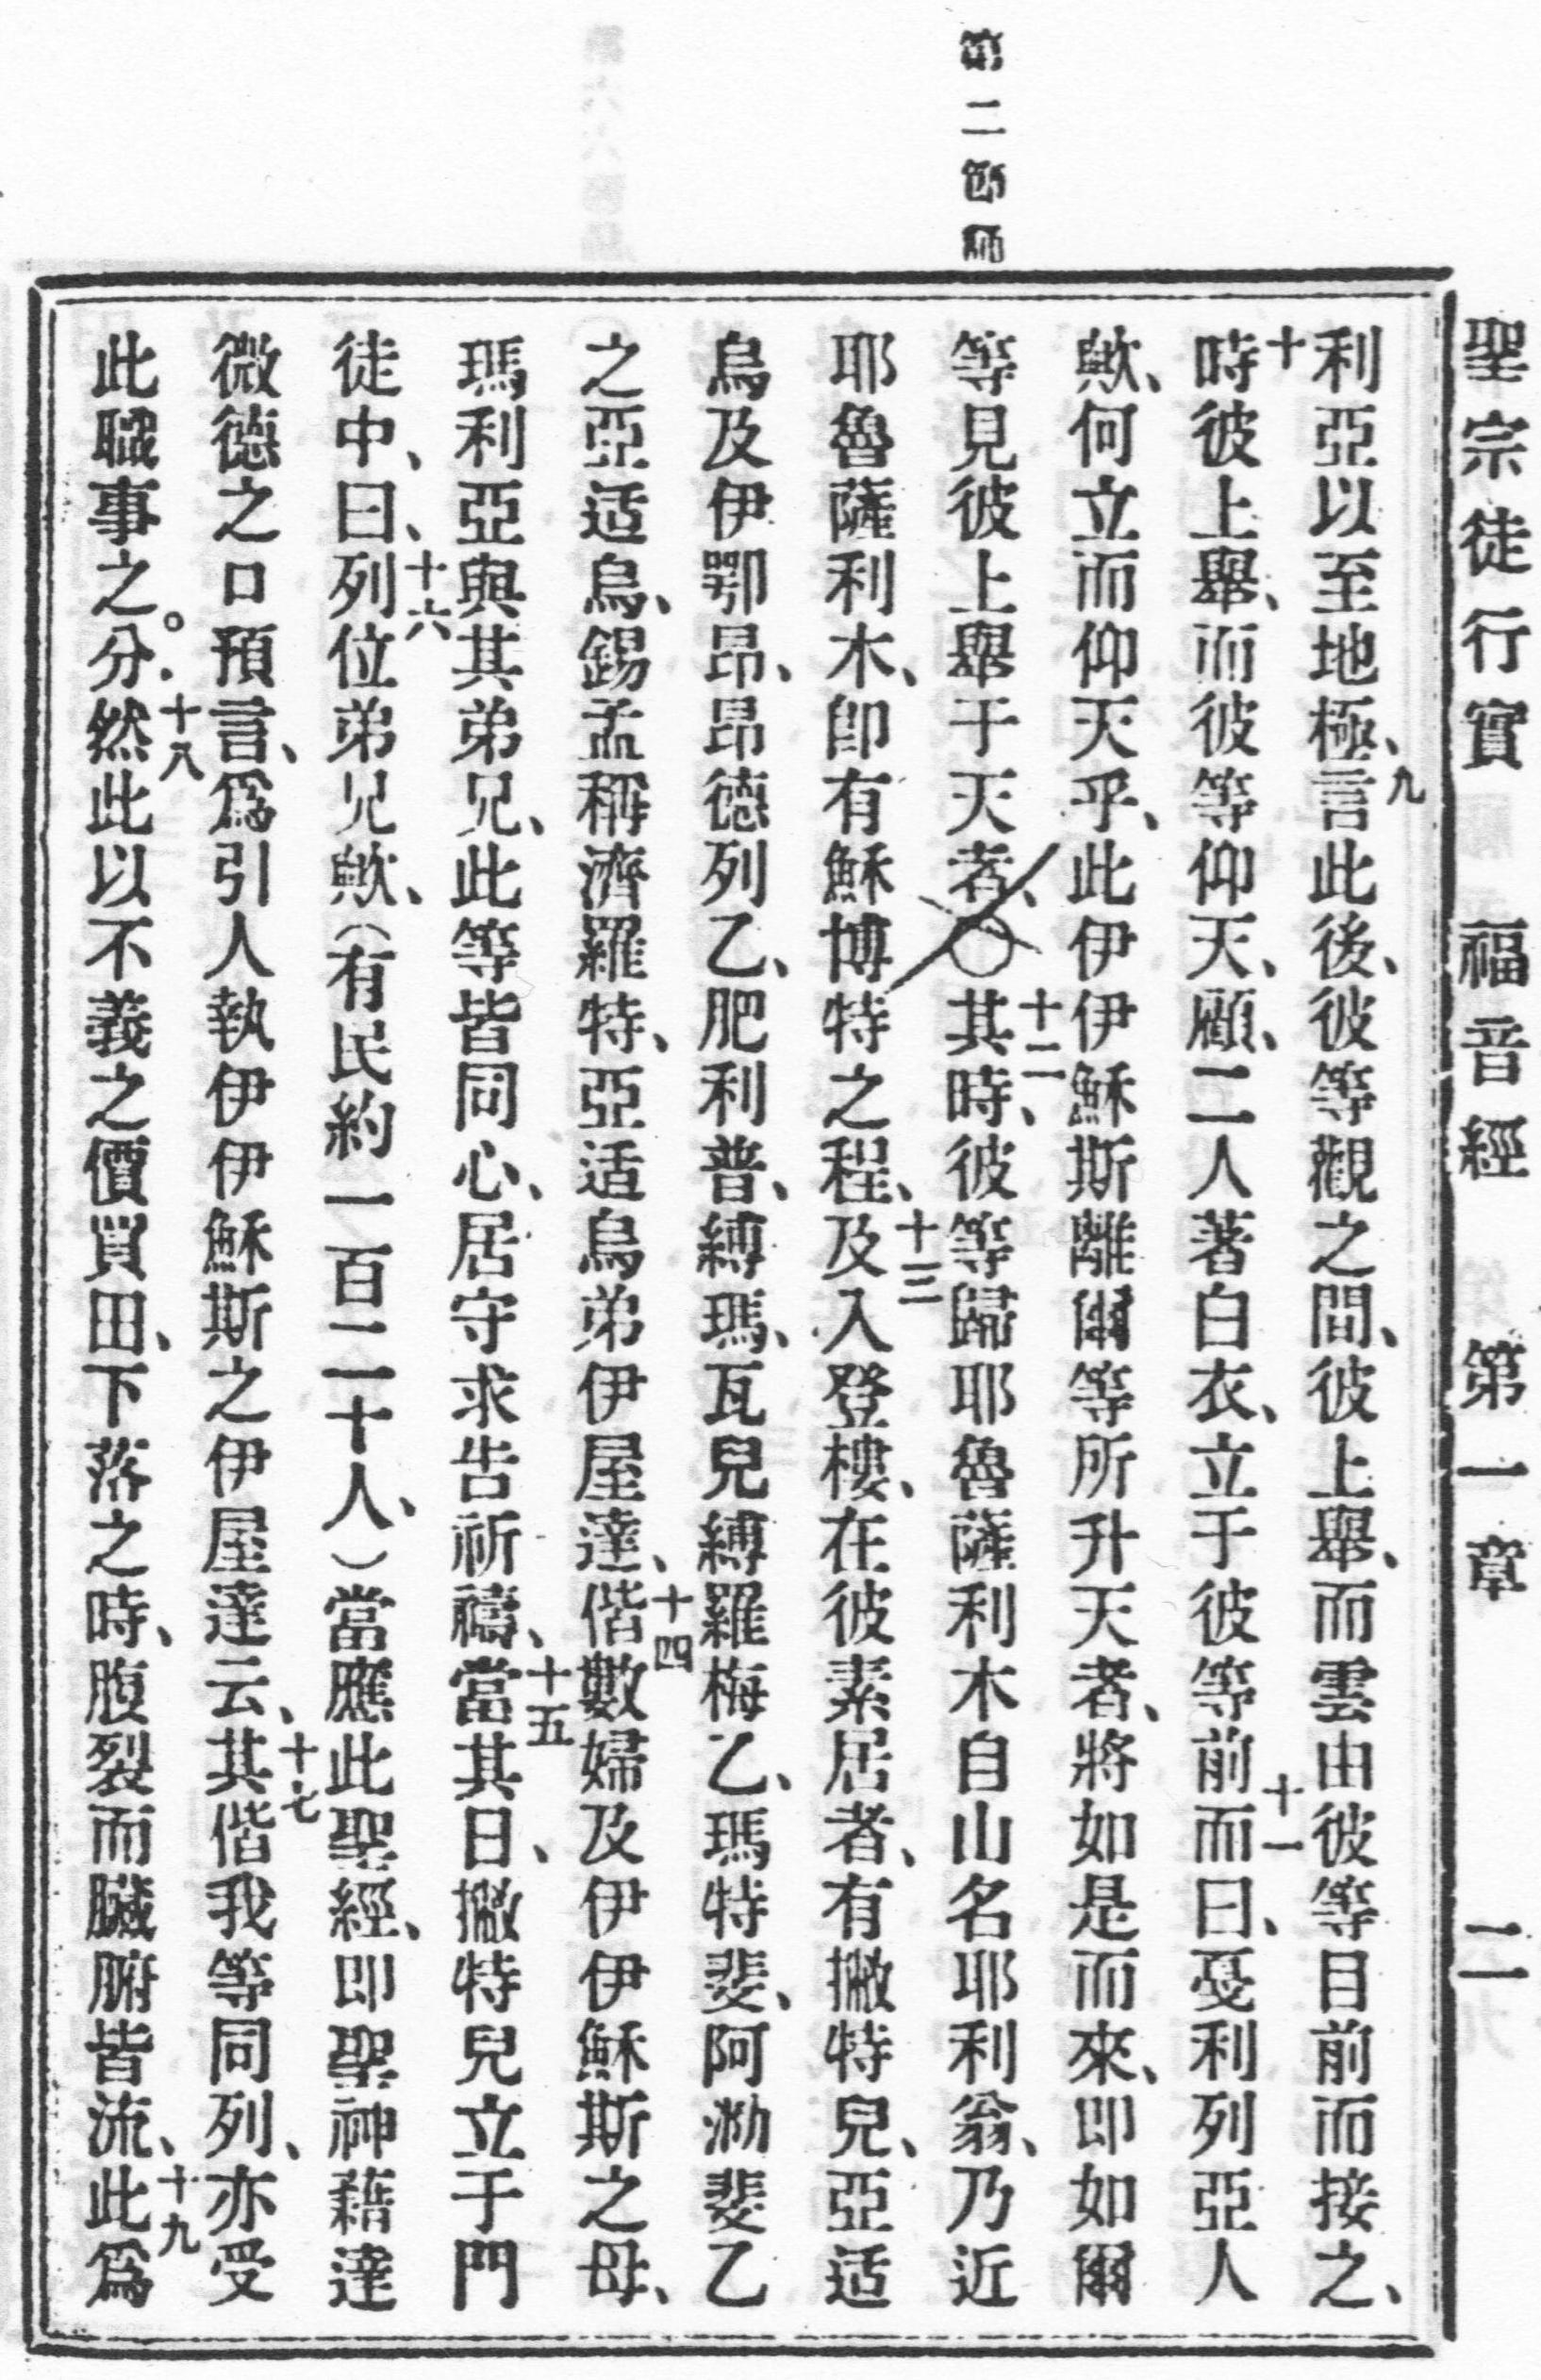 聖宗徒行實 福音經 第一章 二
第二節師
利亞以至地極、九言此後、彼等觀之間、彼上舉、而雲由彼等目前而接之、
十時彼上舉、而彼等仰天、顧、二人著白衣、立于彼等前十一而曰、憂利列亞人
歟、何立而仰天乎、此伊伊穌斯離爾等所升天者、將如是而來、即如爾
等見彼上舉于天者、〇十二其時、彼等歸耶魯薩利木自山名耶利翁、乃近
耶魯薩利木、卽有穌博特之程、十三及入登樓、在彼素居者、有撇特兒、亞适
烏及伊鄂昂、昂德列乙、肥利普、縛瑪、瓦兒縛羅梅乙、瑪特斐、阿泐斐乙
之亞适烏、錫孟稱濟羅特、亞适烏弟伊屋達、十四偕數婦及伊伊穌斯之母、
瑪利亞與其弟兄、此等皆同心、居守求告祈禱、十五當其日、撇特兒立于門
徒中、曰、十六列位弟兄歟、（有民約一百二十人、）當應此聖經、即聖神藉達
微德之口預言、爲引人執伊伊穌斯之伊屋達云、十七其偕我等同列、亦受
此職事之分。十八然此以不義之價買田、下落之時、腹裂而臟腑皆流、十九此爲